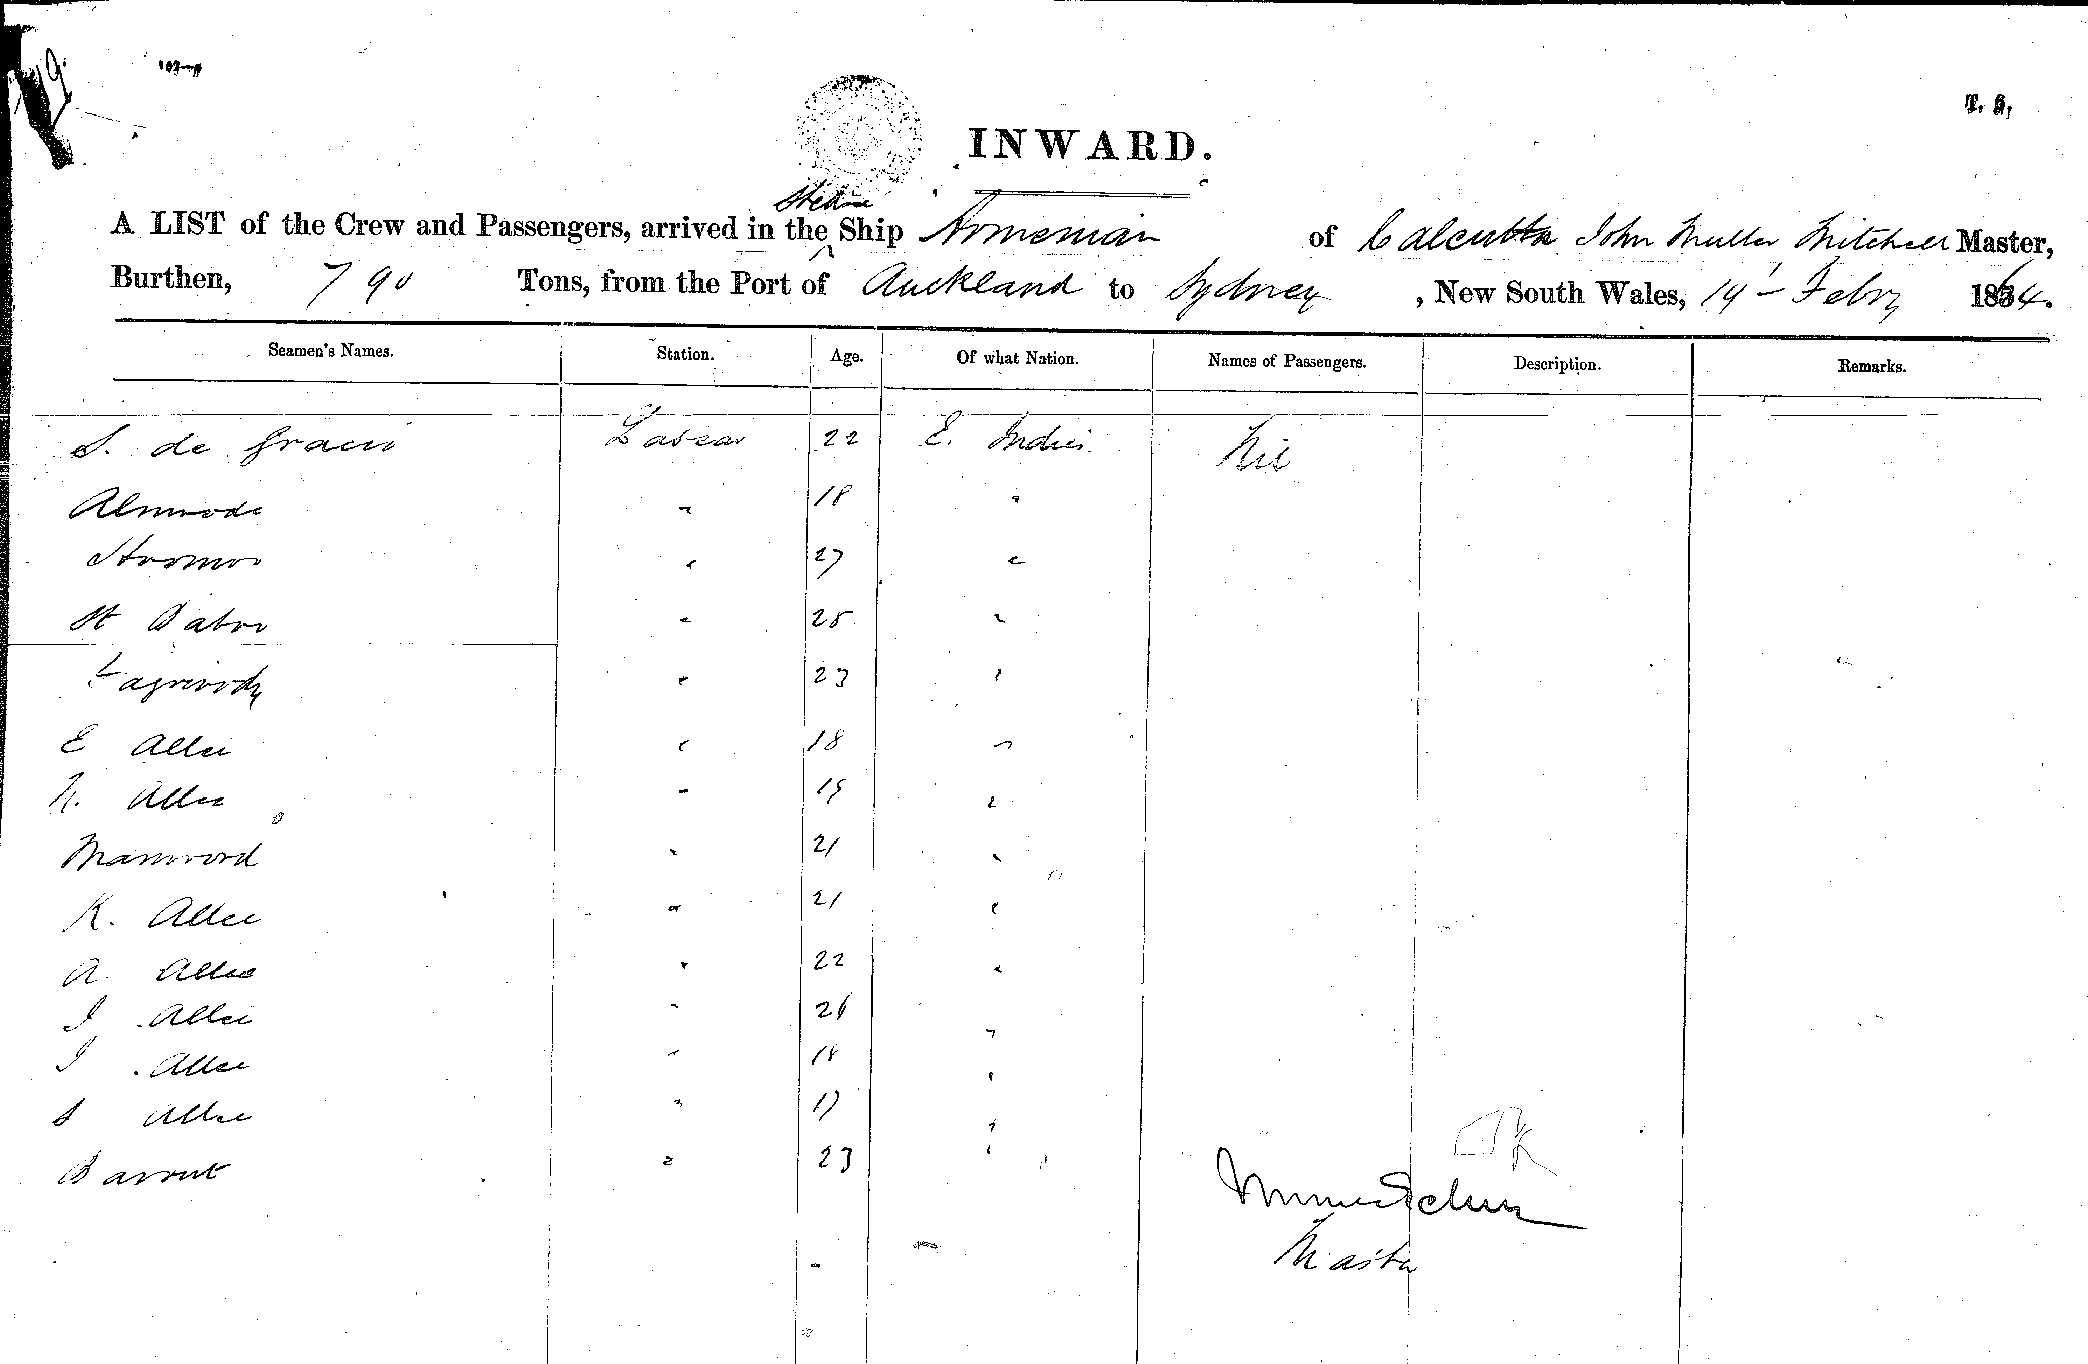 INWARD.
Steam
A LIST of the Crew and Passengers, arrived in the Ship Armenian of Calcutta John Muller Mitchell Master,
Burthen, 790 Tons, from the Port of Auckland to Sydney, New South Wales, 14 Febry 1864.
Seamen's Names. Station. Age. Of what Nation. Names of Passengers. Description. Remarks.
S. de Gracis Lascar 22 E. Indies Nil
Almode " 18 "
27 "
" 25 "
" 23 "
E Allee " 18 "
N. Allee " 19 "
Mamoord " 21 "
K. Allee " 21 "
A. Allee " 22 "
J Allee " 26 "
J Allee " 18 "
S Allee " 17 "
Barout " 23 "
Master